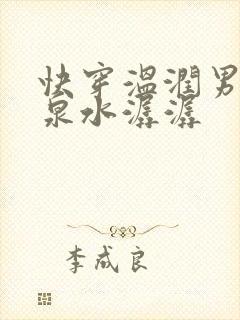 快穿温润男
泉水潺潺
李成良